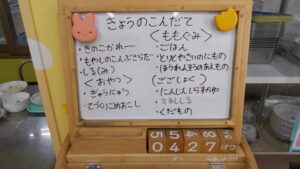 きょうのこんだて
・きのこかれー
・もやしのこんぶさらだ
・しる(みそ)
<おやつ>
・ぎゅうにゅう
・てづくりこめおこし
<ももぐみ>
・ごはん
・とりとやさいのにもの
・ほうれんそうのあえもの
(ごごしょく)
・にんじんしらすがゆ
・すましじる
・くだもの
5 4 8
0 4 2 7